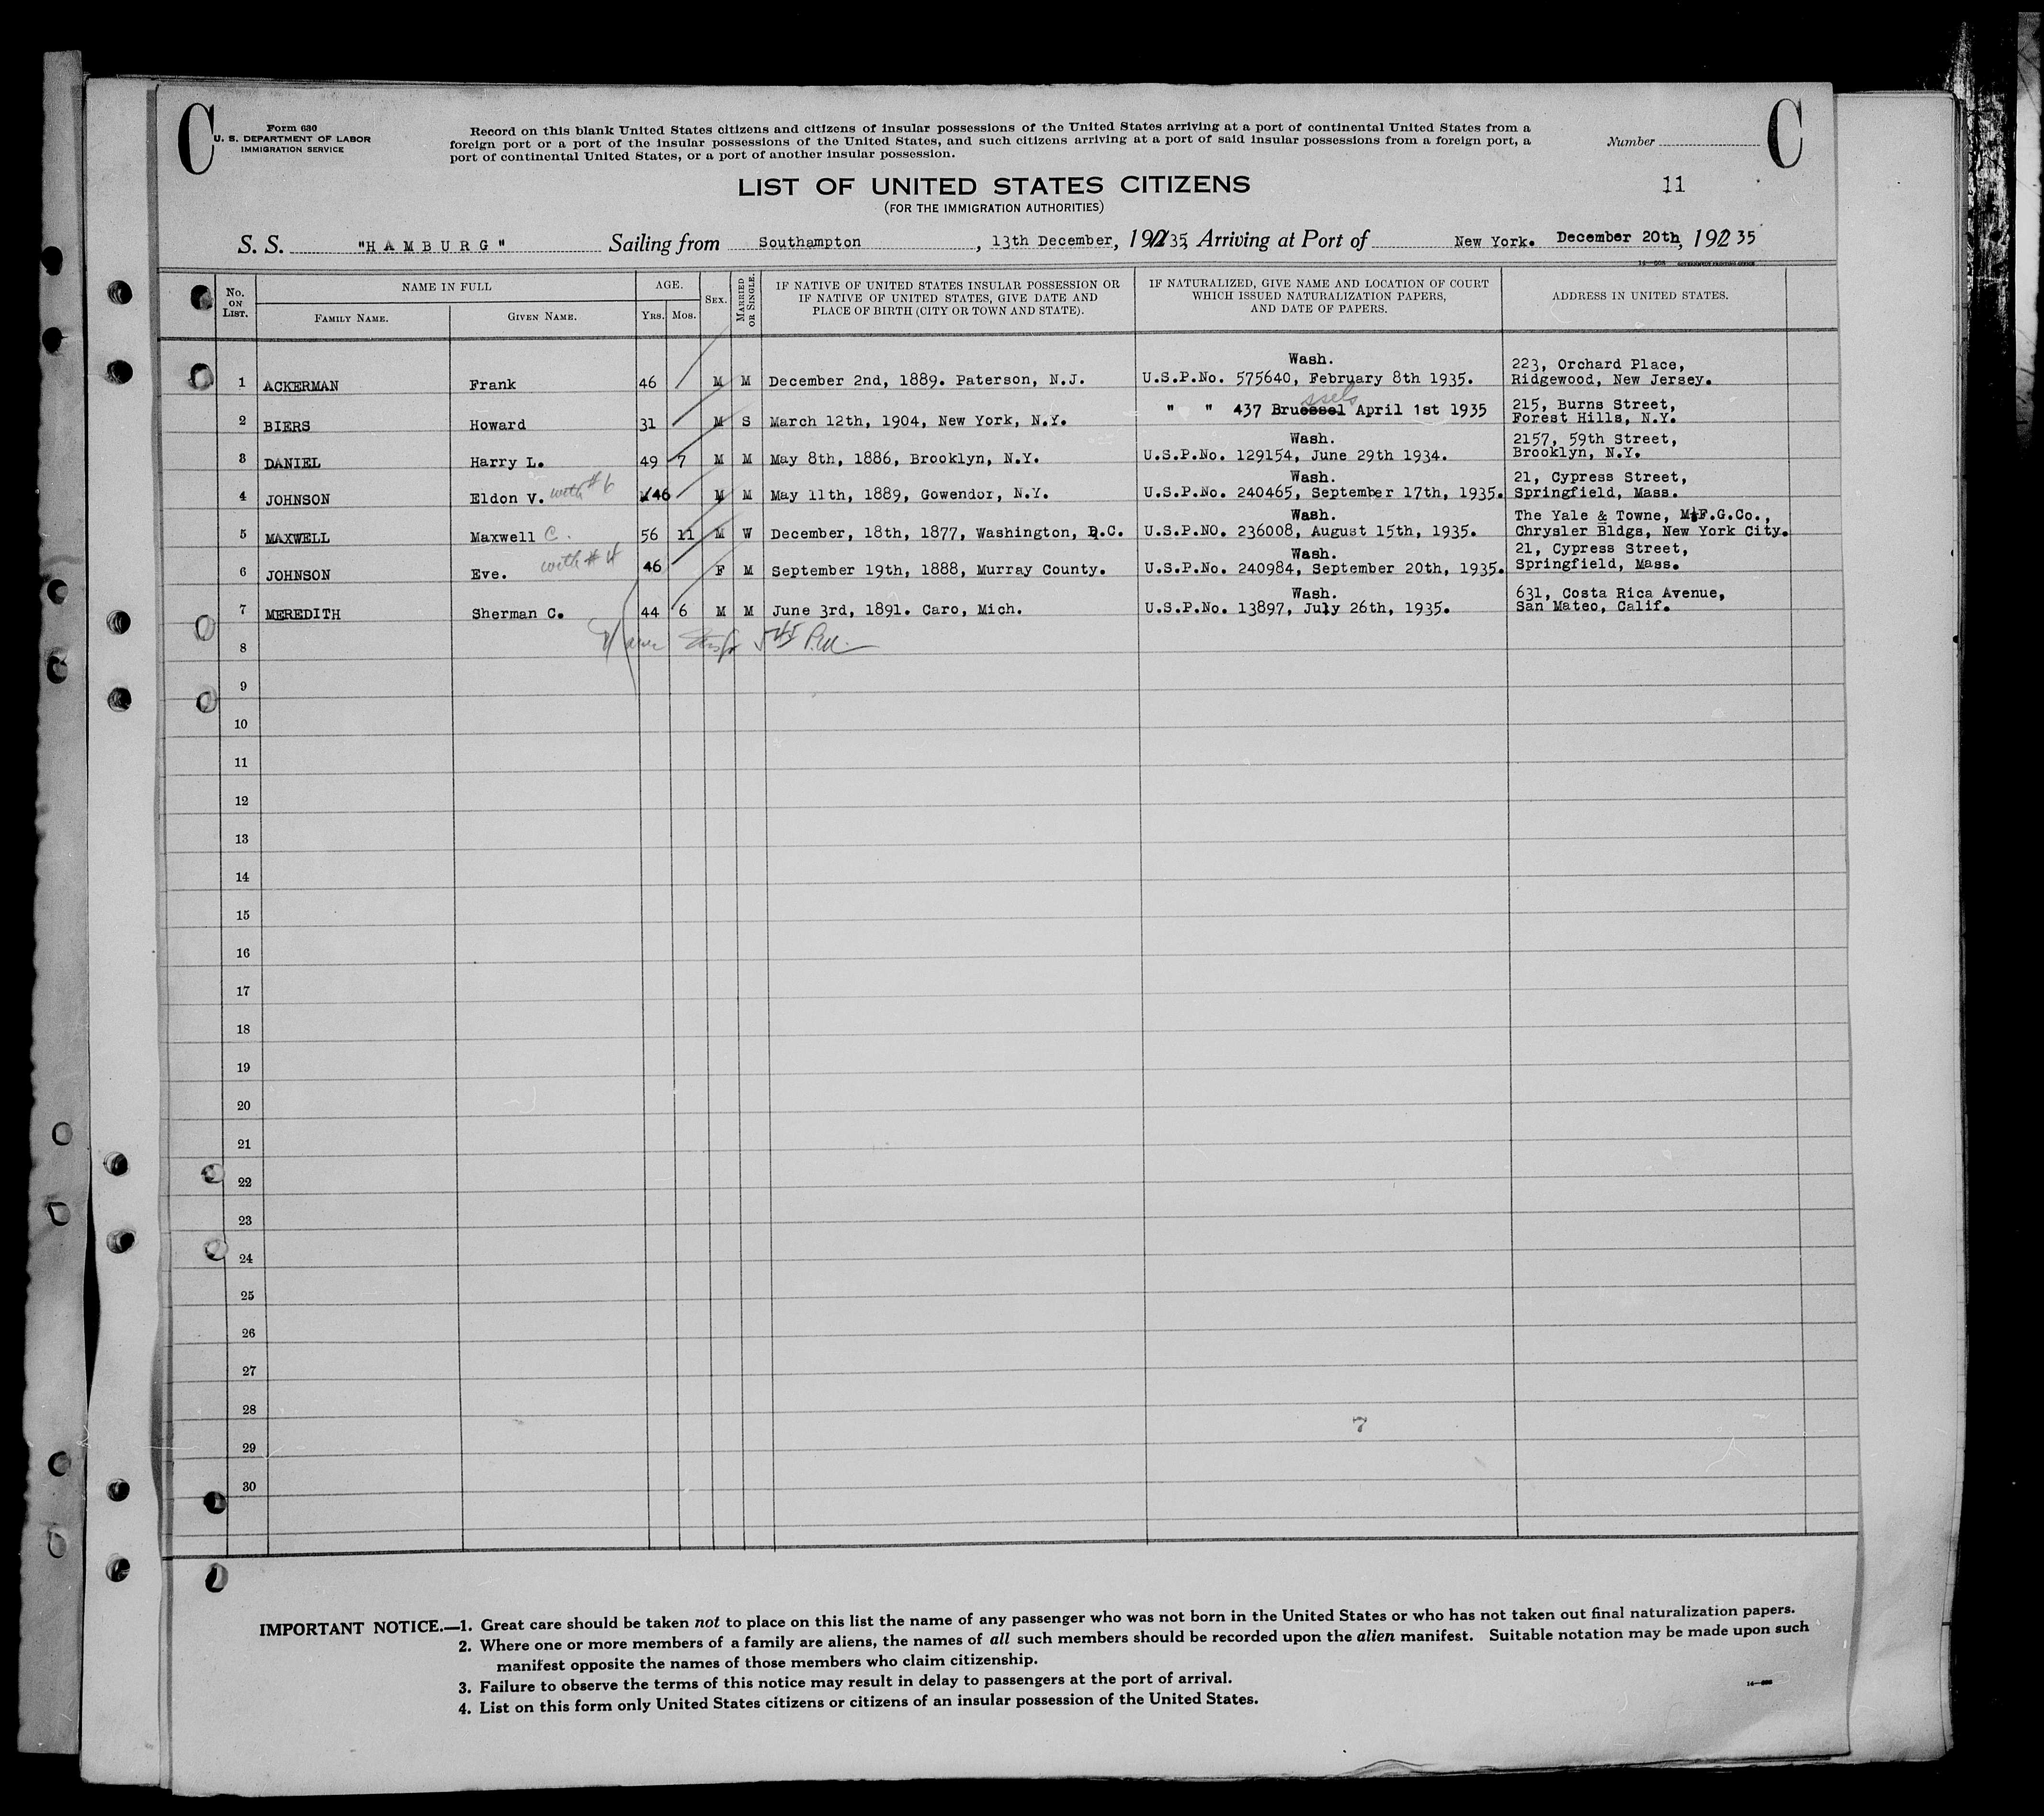 C
Form 630
U. S. DEPARTMENT OF LABOR
IMMIGRATION SERVICE
Record on this blank United States citizens and citizens of insular possessions of the United States arriving at a port of continental United States from a
foreign port or a port of the insular possessions of the United States, and such citizens arriving at a port of said insular possessions from a foreign port, a
port of continental United States, or a port of another insular possession.
Number
C
LIST OF UNITED STATES CITIZENS
(FOR THE IMMIGRATION AUTHORITIES)
11
S. S. "HAMBURG" Sailing from Southampton, 13th December, 1935, Arriving at Port of New York. December 20th, 192 35
No. ON LIST.
NAME IN FULL
FAMILY NAME.
GIVEN NAME.
AGE.
YRS. MOS.
SEX.
MARRIED OR SINGLE.
IF NATIVE OF UNITED STATES INSULAR POSSESSION OR
IF NATIVE OF UNITED STATES, GIVE DATE AND
PLACE OF BIRTH (CITY OR TOWN AND STATE).
IF NATURALIZED, GIVE NAME AND LOCATION OF COURT
WHICH ISSUED NATURALIZATION PAPERS,
AND DATE OF PAPERS.
ADDRESS IN UNITED STATES.
Wash. 223, Orchard Place,
1 ACKERMAN Frank 46 M M December 2nd, 1889. Paterson, N.J. U.S.P.No. 575640, February 8th 1935. Ridgewood, New Jersey.
ssels
" " 437 Bruessel April 1st 1935 215, Burns Street,
2 BIERS Howard 31 M S March 12th, 1904, New York, N.Y. Forest Hills, N.Y.
Wash. 2157, 59th Street,
3 DANIEL Harry L. 49 7 M M May 8th, 1886, Brooklyn, N.Y. U.S.P.No. 129154, June 29th 1934. Brooklyn, N.Y.
Wash. 21, Cypress Street,
4 JOHNSON Eldon V. with #6 46 M M May 11th, 1889, Gowendor, N.Y. U.S.P.No. 240465, September 17th, 1935. Springfield, Mass.
Wash. The Yale & Towne, M.F.G.Co.,
5 MAXWELL Maxwell C. 56 11 M W December, 18th, 1877, Washington, D.C. U.S.P.NO. 236008, August 15th, 1935. Chrysler Bldgs, New York City.
Wash. 21, Cypress Street,
6 JOHNSON Eve. with #4 46 F M September 19th, 1888, Murray County. U.S.P.No. 240984, September 20th, 1935. Springfield, Mass.
Wash. 631, Costa Rica Avenue,
7 MEREDITH Sherman C. 44 6 M M June 3rd, 1891. Caro, Mich. U.S.P.No. 13897, July 26th, 1935. San Mateo, Calif.
8
9
10
11
12
13
14
15
16
17
18
19
20
21
22
23
24
25
26
27
28
7
29
30
IMPORTANT NOTICE.—1. Great care should be taken not to place on this list the name of any passenger who was not born in the United States or who has not taken out final naturalization papers.
2. Where one or more members of a family are aliens, the names of all such members should be recorded upon the alien manifest. Suitable notation may be made upon such
manifest opposite the names of those members who claim citizenship.
3. Failure to observe the terms of this notice may result in delay to passengers at the port of arrival.
4. List on this form only United States citizens or citizens of an insular possession of the United States.